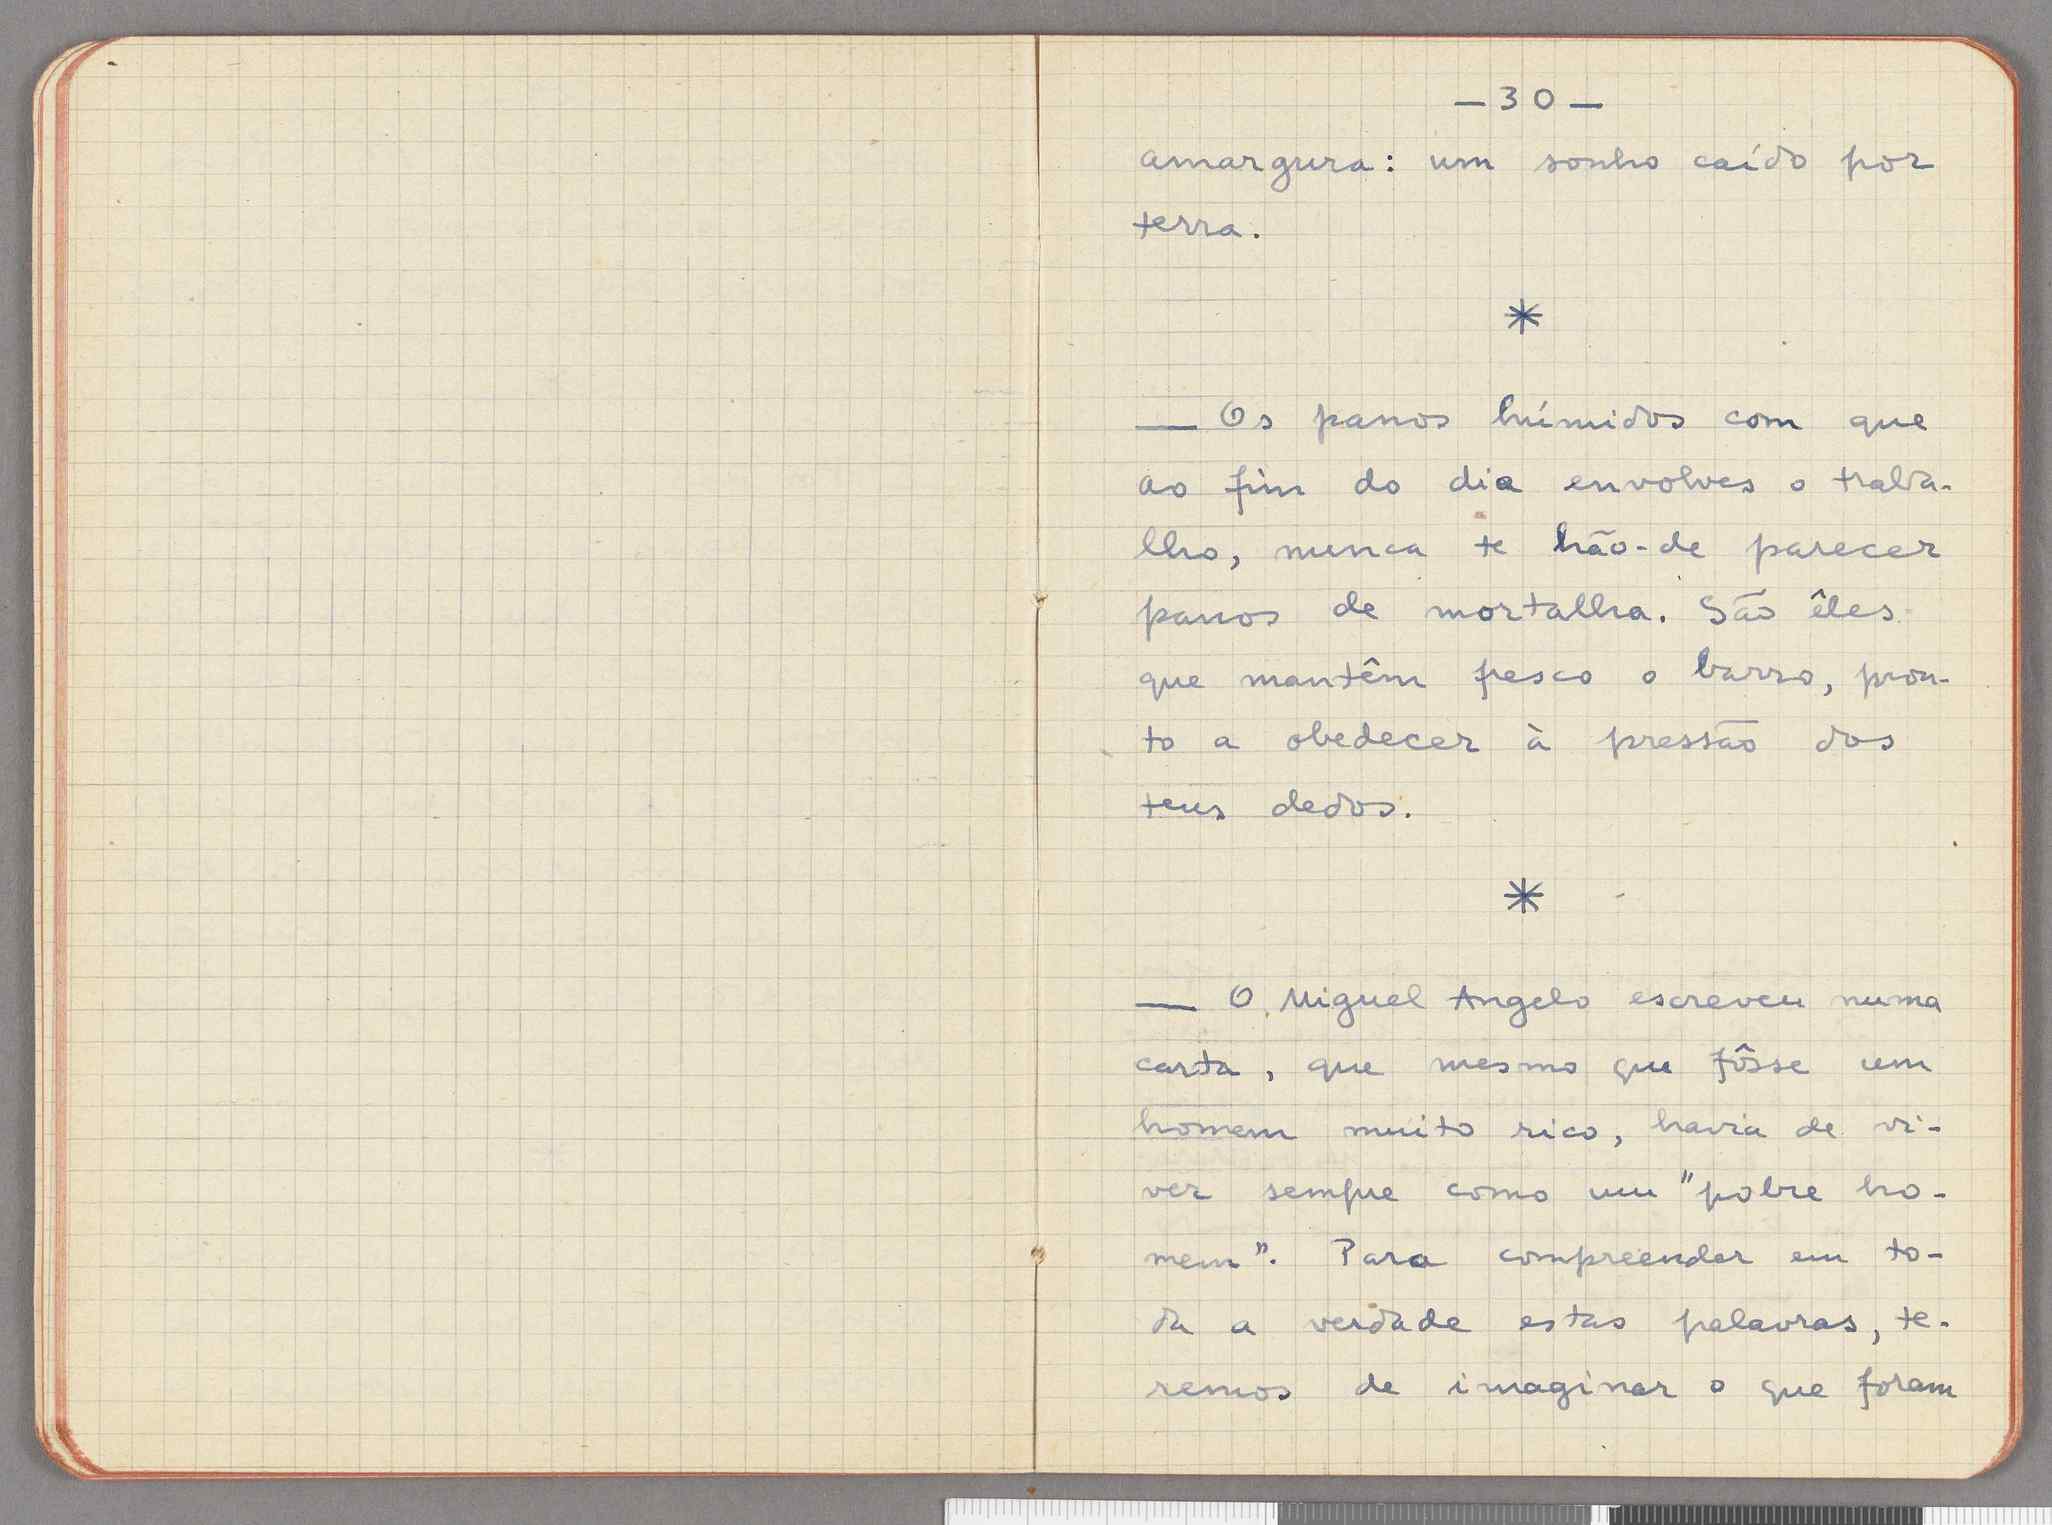 —30—
amargura: um sonho caído por
terra.
*
— Os panos húmidos com que
ao fim do dia envolves o traba-
lho, nunca te hão-de parecer
panos de mortalha. São êles
que mantêm fresco o barro, pron-
to a obedecer à pressão dos
teus dedos.
*
— O Miguel Angelo escreveu numa
carta, que mesmo que fôsse um
homem muito rico, havia de vi-
ver sempre como um "pobre ho-
mem". Para compreender em to-
da a verdade estas palavras, te-
remos de imaginar o que foram